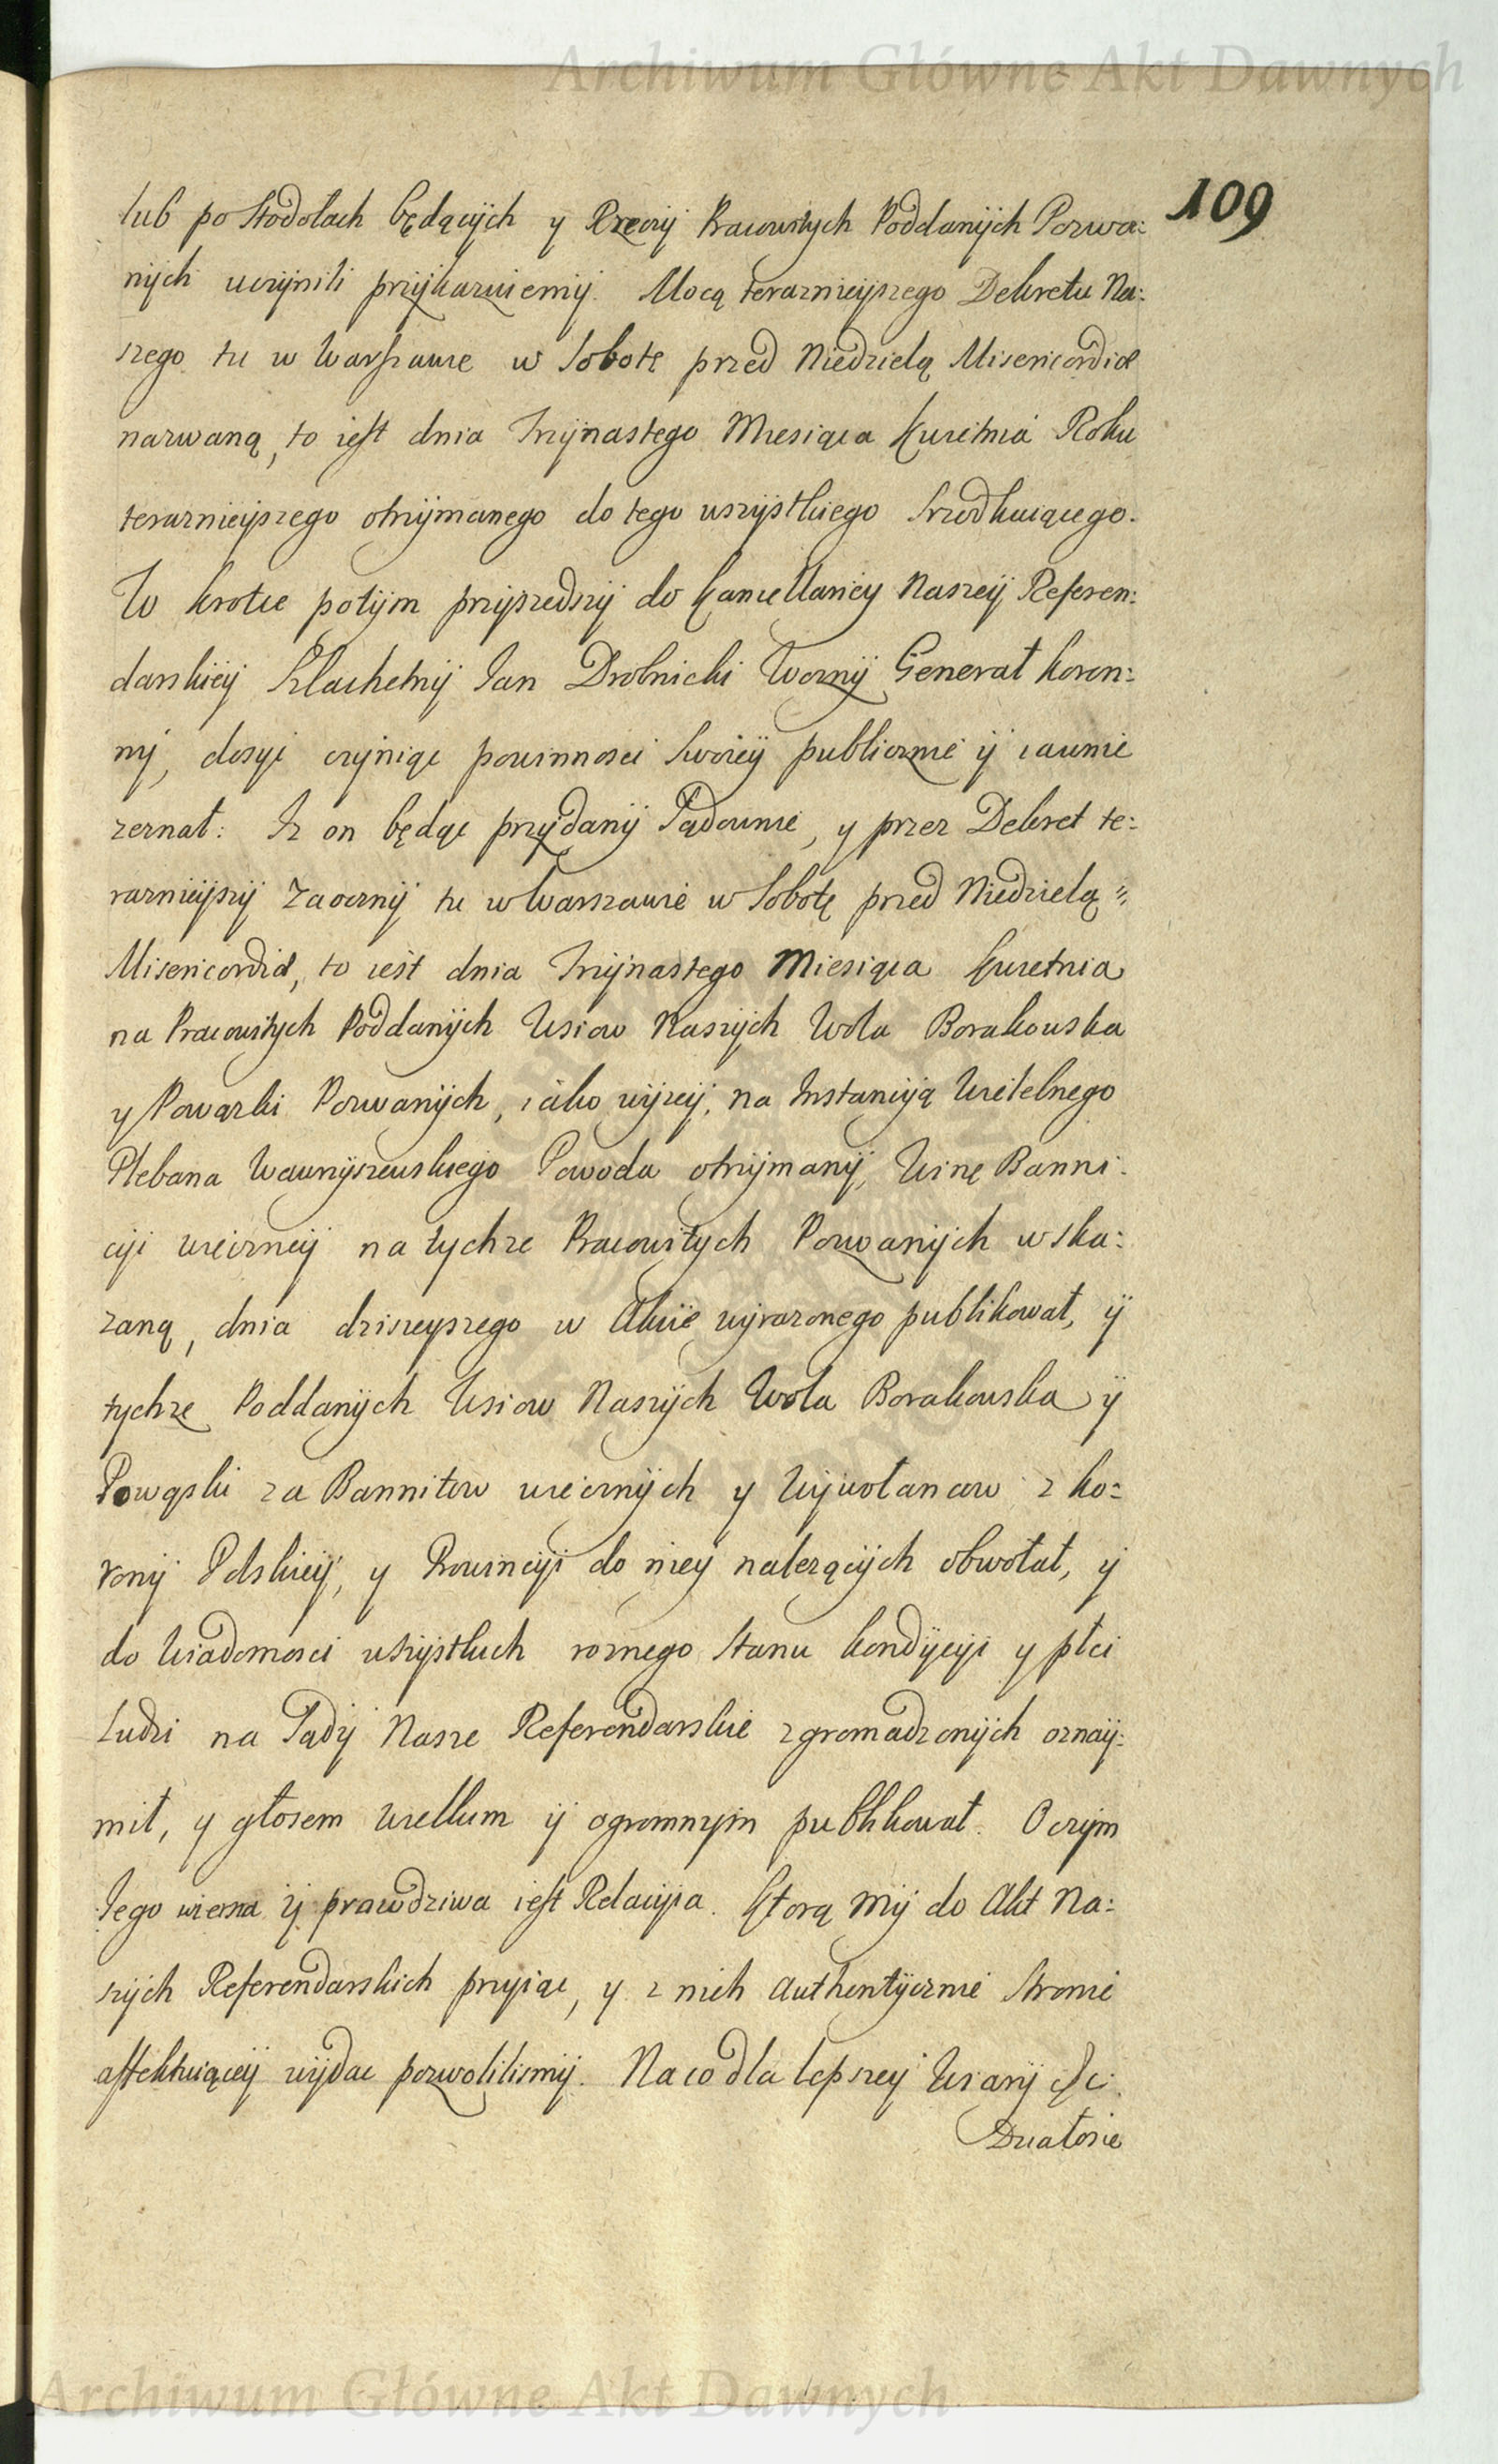 Archiwum Główne Akt Dawnych
109
lub po Stodołach będących y Rzeczÿ Pracowitych Poddanÿch Pozwa:
nÿch uczÿnili przÿkazuiemÿ. Mocą teraznieÿszego Dekretu Na:
szego tu w Warszawie w Sobotę przed Niedzielą Misericordiæ
nazwaną, to iest dnia Trzÿnastego Miesiąca Kwietnia Roku
teraznieÿszego otrzÿmanego do tego wszÿstkiego Srzodkuiącego.
W krotce potÿm przÿszedszÿ do Kancellarÿey Naszeÿ Referen:
darskieÿ Szlachetnÿ Jan Drobnicki Woznÿ Generał Koron:
nÿ, dosÿc czÿniąc powinnosci Swoieÿ publicznie ÿ iawnie
zeznał: Iz on będąc przÿdanÿ Sądownie, y przez Dekret te:
raznieÿszÿ Zaocznÿ tu w Warszawie w Sobotę przed Niedzielą
Misericordiæ, to iest dnia Trzÿnastego Miesiąca Kwietnia
na Pracowitych Poddanÿch Wsiow Naszÿch Wola Borakowska
y Powązki Pozwanÿch, iako wÿzeÿ, na Instancÿą Wielebnego
Plebana Wawrzÿszewskiego Powoda otrzÿmanÿ, Winę Banni:
cÿi wieczneÿ na tychze Pracowitych Pozwanÿch wska:
zaną, dnia dzisieyszego w Akcie wÿrazonego publikował, ÿ
tychze Poddanÿch Wsiow Naszÿch Wola Borakowska ÿ
Powąski za Bannitow wiecznÿch y Wÿwołancow z Ko:
ronÿ Polskieÿ, y Prowincÿi do nieÿ nalezącÿch obwołał, ÿ
do Wiadomosci wszÿstkich roznego Stanu kondÿcÿi y płci
Ludzi na Sądÿ Nasze Referendarskie zgromadzonÿch oznaÿ:
mił, y głosem wielkim ÿ ogromnym publikował. O czÿm
Jego wierna ÿ prawdziwa iest Relacÿia. Ktorą Mÿ do Akt Na:
szÿch Referendarskich przÿiąc, y z nich Authentÿcznie Stronie
affektuiąceÿ wÿdac pozwolilismÿ. Na co dla lepszeÿ Wiarÿ &c:
Działo sie
Archiwum Główne Akt Dawnych